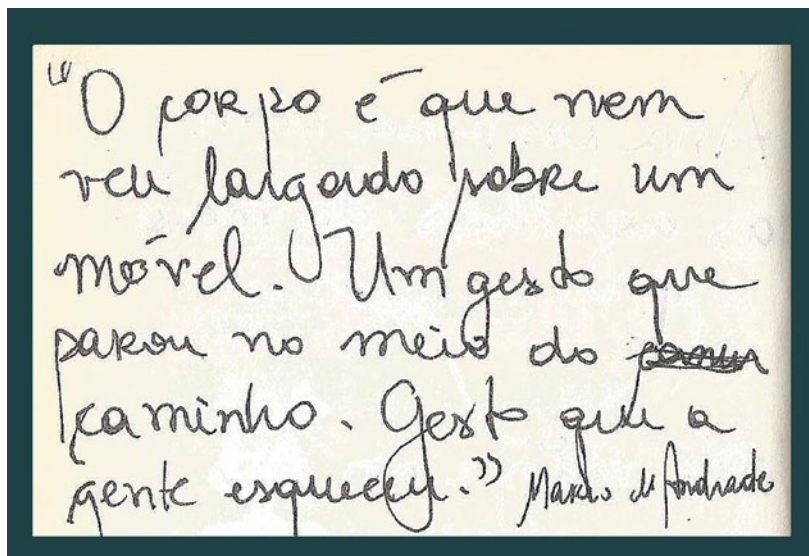 "O corpo é que nem
véu largado sobre um
móvel. Um gesto que
parou no meio do
caminho. Gesto que a
gente esqueceu." Mario de Andrade